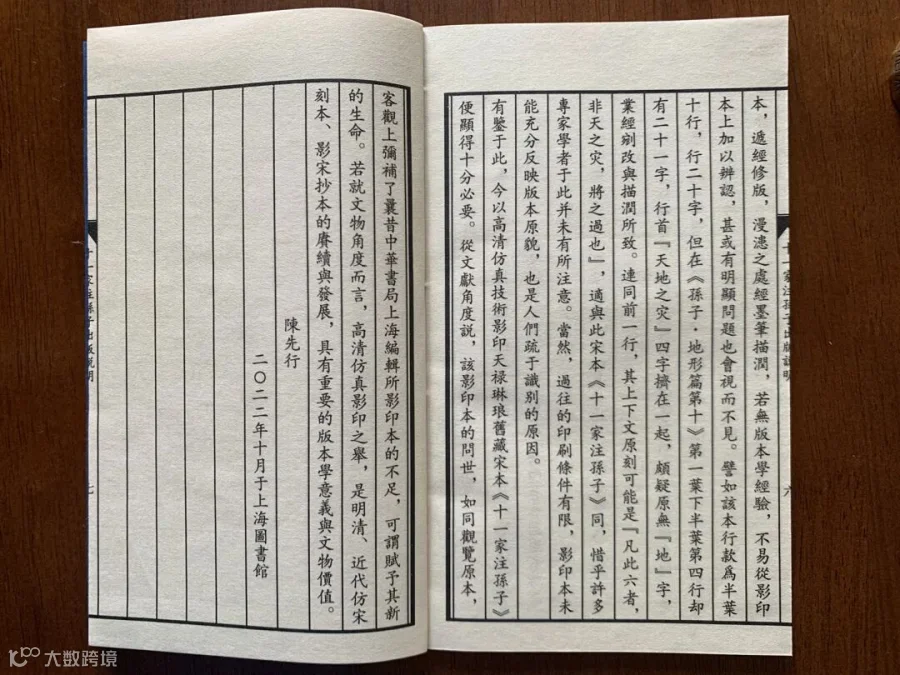 本，遞經修版，漫漶之處經墨筆描潤，若無版本學經驗，不易從影印
本上加以辨認，甚或有明顯問題也會視而不見。譬如該本行款爲半葉
十行，行二十字，但在《孫子·地形篇第十》第一葉下半葉第四行却
有二十一字，行首『天地之灾』四字擠在一起，頗疑原無『地』字，
業經剜改與描潤所致。連同前一行，其上下文原刻可能是『凡此六者，
非天之灾，將之過也』，適與此宋本《十一家注孫子》同，惜乎許多
專家學者于此并未有所注意。當然，過往的印刷條件有限，影印本未
能充分反映版本原貌，也是人們疏于識別的原因。
有鑒于此，今以高清仿真技術影印天禄琳琅舊藏宋本《十一家注孫子》
便顯得十分必要。從文獻角度説，該影印本的問世，如同觀覽原本，
十一家注孫子出版説明
六
客觀上彌補了曩昔中華書局上海編輯所影印本的不足，可謂賦予其新
的生命。若就文物角度而言，高清仿真影印之舉，是明清、近代仿宋
刻本、影宋抄本的賡續與發展，具有重要的版本學意義與文物價值。
陳先行
二〇二二年十月于上海圖書館
十一家注孫子出版説明
七
大数跨境